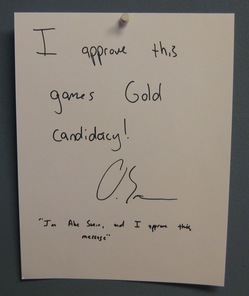 I approve this
games Gold
candidacy!
"I'm Abe Sum, and I approve this
message"